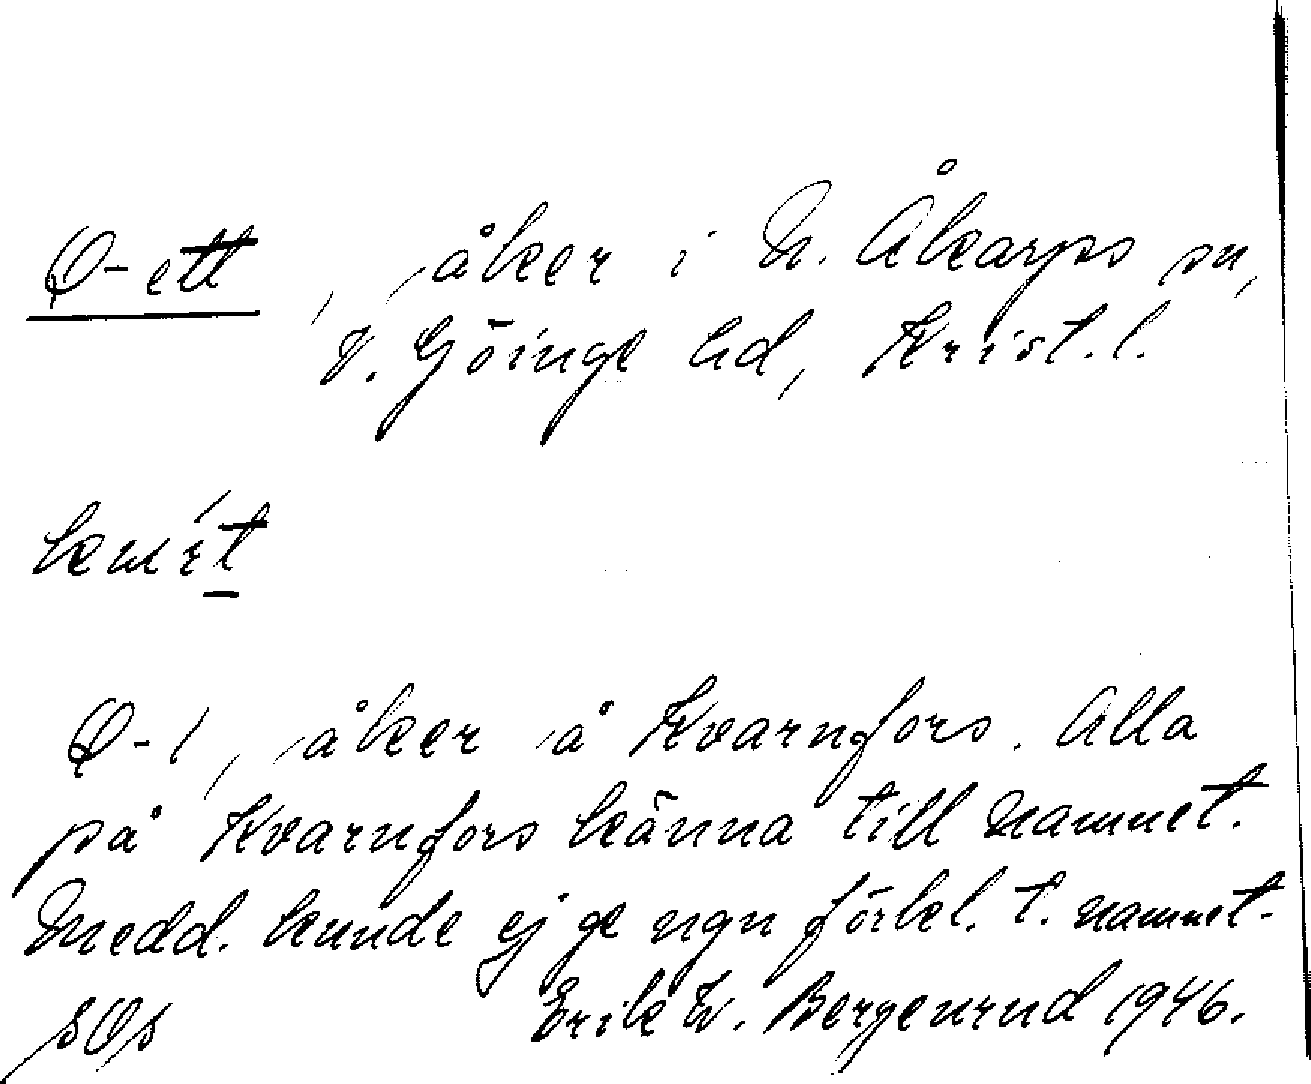 Q-ett, åker i N. Åkarps sn,
V. Göinge hd, Krist. l.
Q-1, åker å Kvarnfors. Alla
på Kvarnfors känna till namnet.
Medd. kunde ej ge ngn förkl. t. namnet.
Erik W. Bergenrud 1946.